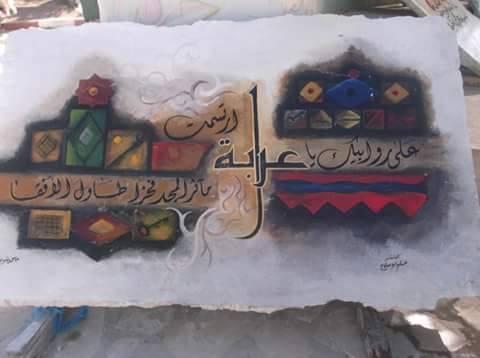 على روابيك يا
عرابة
ارتسمت
مآثر المجد فخرا طاول الأفقا